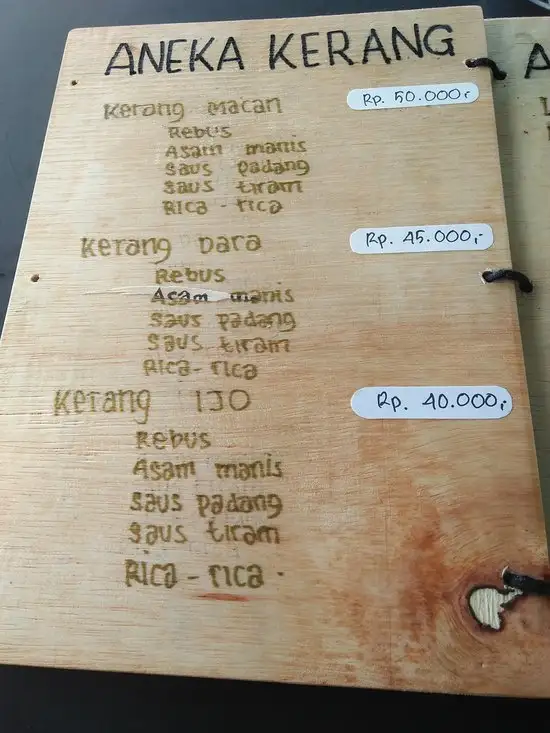 ANEKA KERANG
Kerang macan Rp. 50.000,-
Rebus
Asam manis
Saus padang
Saus tiram
Rica - rica
Kerang Dara Rp. 45.000,-
Rebus
Asam manis
Saus padang
Saus tiram
Rica - rica
Kerang IJO Rp. 40.000,-
Rebus
Asam manis
Saus padang
Saus tiram
Rica - rica
A